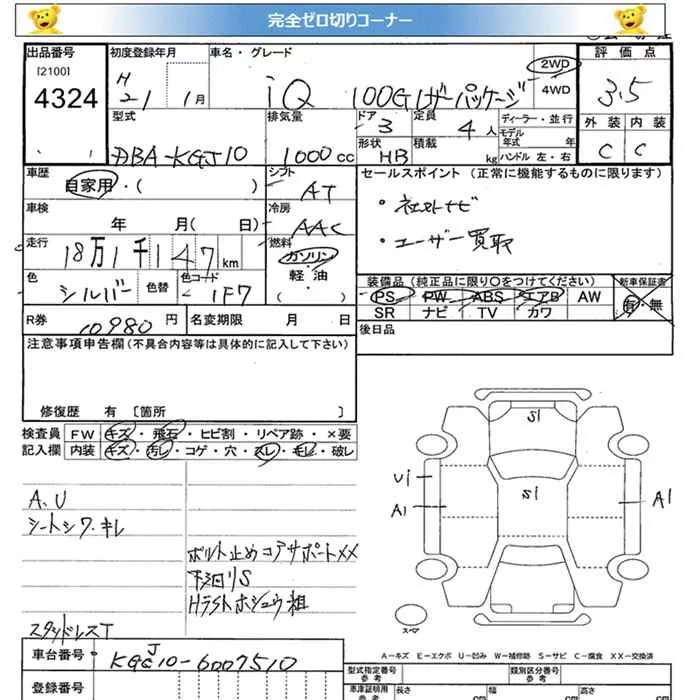 完全ゼロ切りコーナー
出品番号 初度登録年月 車名・グレード 2WD 評価点
[2100] H 4WD
4324 21 1月 iQ 100Gレザーパッケージ 3.5
型式 排気量 ドア 3 定員 4人 ディーラー・並行 外装 内装
モデル年式 年式
DBA-KGJ10 1000cc 形状 HB 積載 kg ハンドル 左・右 C C
車歴 シフト セールスポイント (正常に機能するものに限ります)
自家用・( ) AT
車検 冷房 ・社外ナビ
年 月( 日) AAC ・ユーザー買取
走行 燃料
18万1千147km ガソリン
色 色替 色コード 軽・油 装備品 (純正品に限り○をつけてください) 新車保証書
シルバー 1F7 ( ) PS PW ABS エアB AW 有・無
SR ナビ TV カワ
R券 10980円 名変期限 月 日 後日品
注意事項申告欄(不具合内容等は具体的に記入して下さい)
修復歴 有 [箇所 ]
検査員 FW キズ・飛石・ヒビ割・リペア跡・×要
記入欄 内装 キズ・汚レ・コゲ・穴・スレ・キレ・破レ
S1
A、U
シートシワ・キレ
U1 S1
A1 A1
ボルト止めコアサポートXX
下回りS
スタッドレスT スペア
A-キズ E-エクボ U-凹み W-補修跡 S-サビ C-腐食 XX-交換済
車台番号 KGJ10-6007510 型式指定番号 参考 類別区分番号 参考
登録番号 車庫証明用 参考 長さ cm 幅 cm 高さ cm